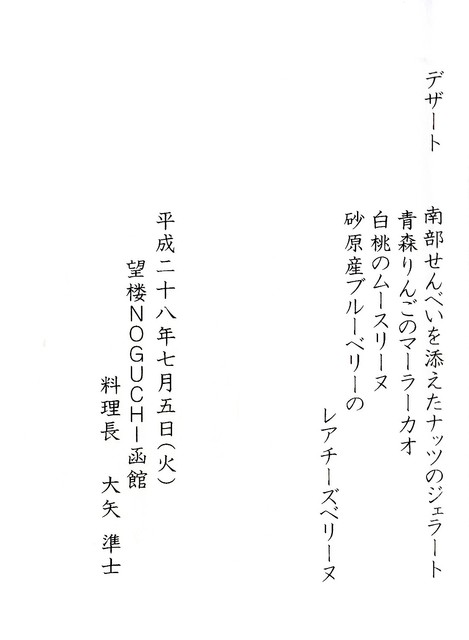 デザート
南部せんべいを添えたナッツのジェラート
青森りんごのマーラーカオ
白桃のムースリーヌ
砂原産ブルーベリーの
レアチーズベリーヌ
平成二十八年七月五日(火)
望楼NOGUCHI函館
料理長 大矢 準士